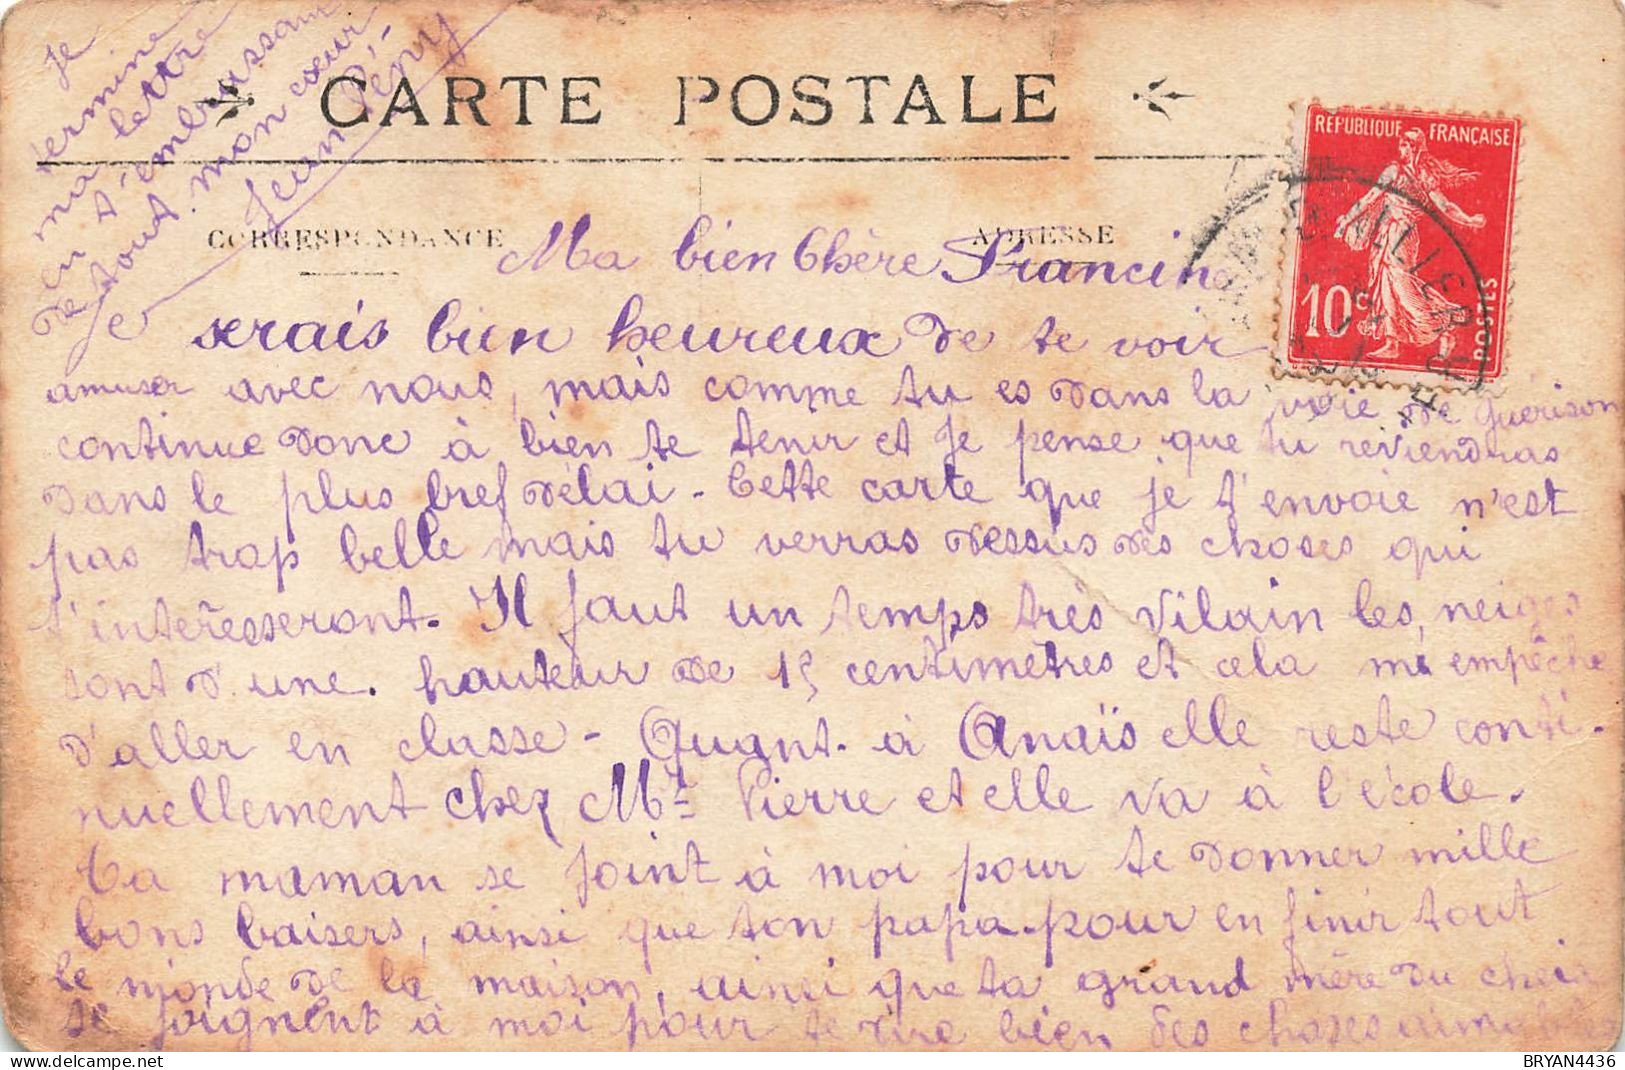 CARTE POSTALE
CORRESPONDANCE
ADRESSE
REPUBLIQUE FRANÇAISE
10c
POSTES
Ma bien Chère Francine
Je serais bien heureux de te voir
amuser avec nous, mais comme tu es dans la voie de Guérison
continue donc à bien te tenir et Je pense que tu reviendras
dans le plus bref délai - Cette carte que je t'envoie n'est
pas trop belle mais tu verras dessus des choses qui
t'intéresseront. Il faut un temps très vilain les, neiges
sont d'une. hauteur de 15 centimètres et cela me empêche
d'aller en classe - Quant. à Anaïs elle reste conti-
nuellement chez Mr Pierre et elle va à l'école.
Ta maman se joint à moi pour te donner mille
bons baisers, ainsi que ton papa. pour en finir tout
le monde de la maison, ainsi que ta grand mère du
se joignent à moi pour te dire bien des choses aimables
Je
termine
ma lettre
en t'embrassant
de tout mon cœur
Jean
BRYAN4436